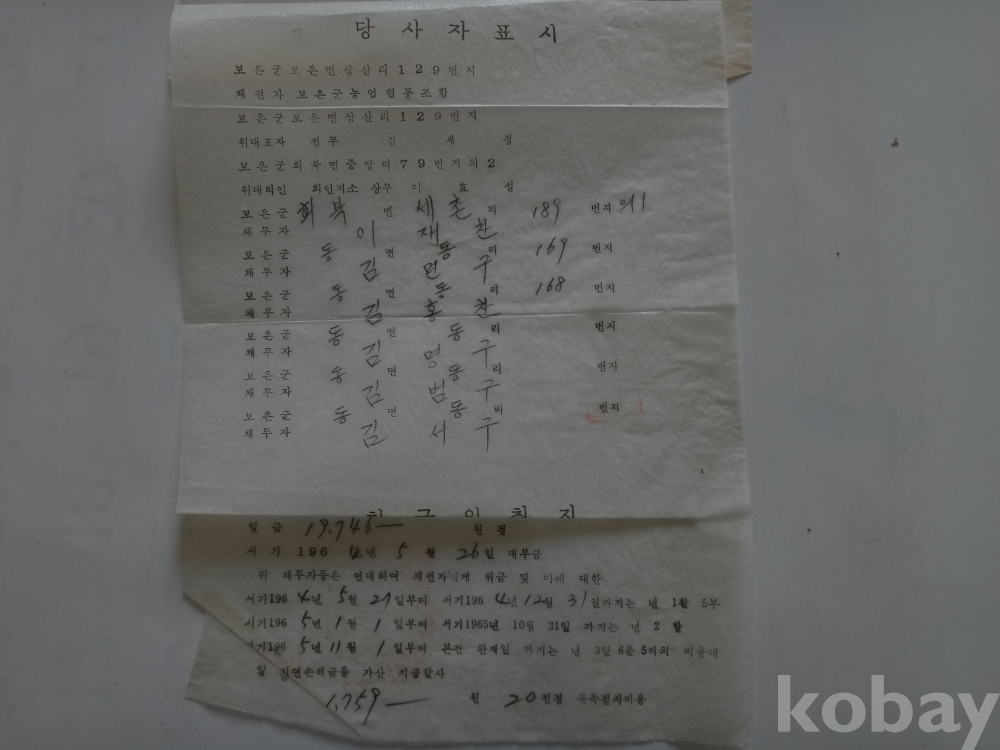 당사자표시
보은군보은면삼산리129번지
채권자 보은군농업협동조합
보은군보은면삼산리129번지
위대표자 전무 김세경
보은군회북면중앙리79번지의2
위대리인 회인지소 상무 이효성
보은군 회북면 세촌리 189번지의1
채무자 이재찬
보은군 동면 동리 169번지
채무자 김면구
보은군 동면 동리 168번지
채무자 김홍찬
보은군 동면 동리 번지
채무자 김명구
보은군 동면 동리 번지
채무자 김범구
보은군 동면 동리 번지
채무자 김서구
일금 19,746— 원정
서기 1964년 5월 26일 대부금
위 채무자등은 연대하여 채권자에게 위금 및 이에 대한
서기1964년 5월 27일부터 서기1964년 12월 31일까지는 년 1할 5부
서기1965년 1월 1일부터 서기1965년 10월 31일 까지는 년 2할
서기1965년 11월 1일부터 본건 완제일 까지는 년 3할 6푼 5리의 비율에
일 지연손해금을 가산 지급할사
1,759— 원 20전정 독촉절차비용
kobay